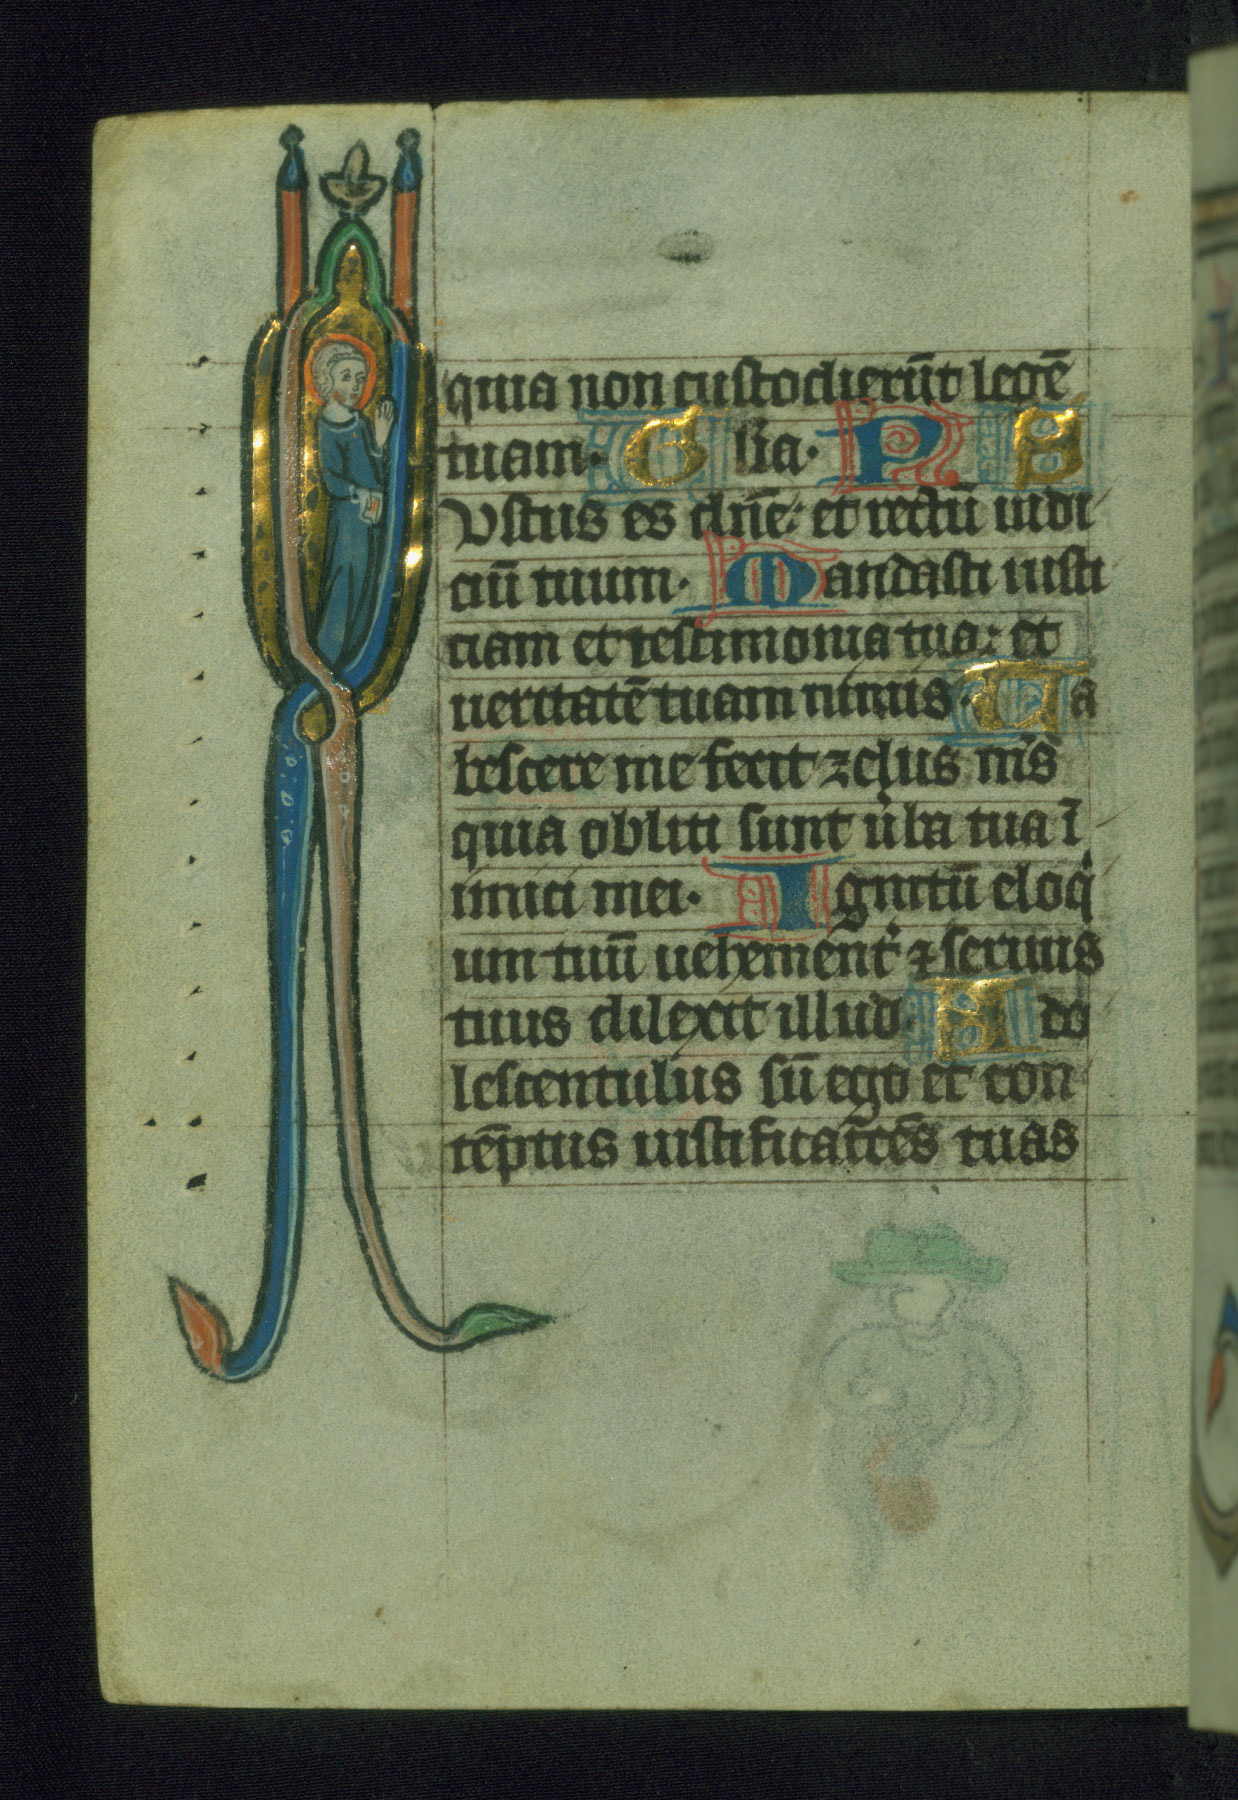 quia non custodierūt̄ legē
tuam· G lr̄ia· P S
Ustus es dn̄e: et rectū iudi
ciū tuum· Mandasti iusti
tiam et testimonia tua: et
ueritatē tuam nimis· Ta
bescere me fecit zelus ms̄
quia obliti sunt ūba tua ī
imici mei· Ignitū eloq̄
um tuū uehement᷑ ⁊ seruus
tuus dilexit illud· Ado
lescentulus sū ego et con
tēptus iustificat̄ōēs tuas